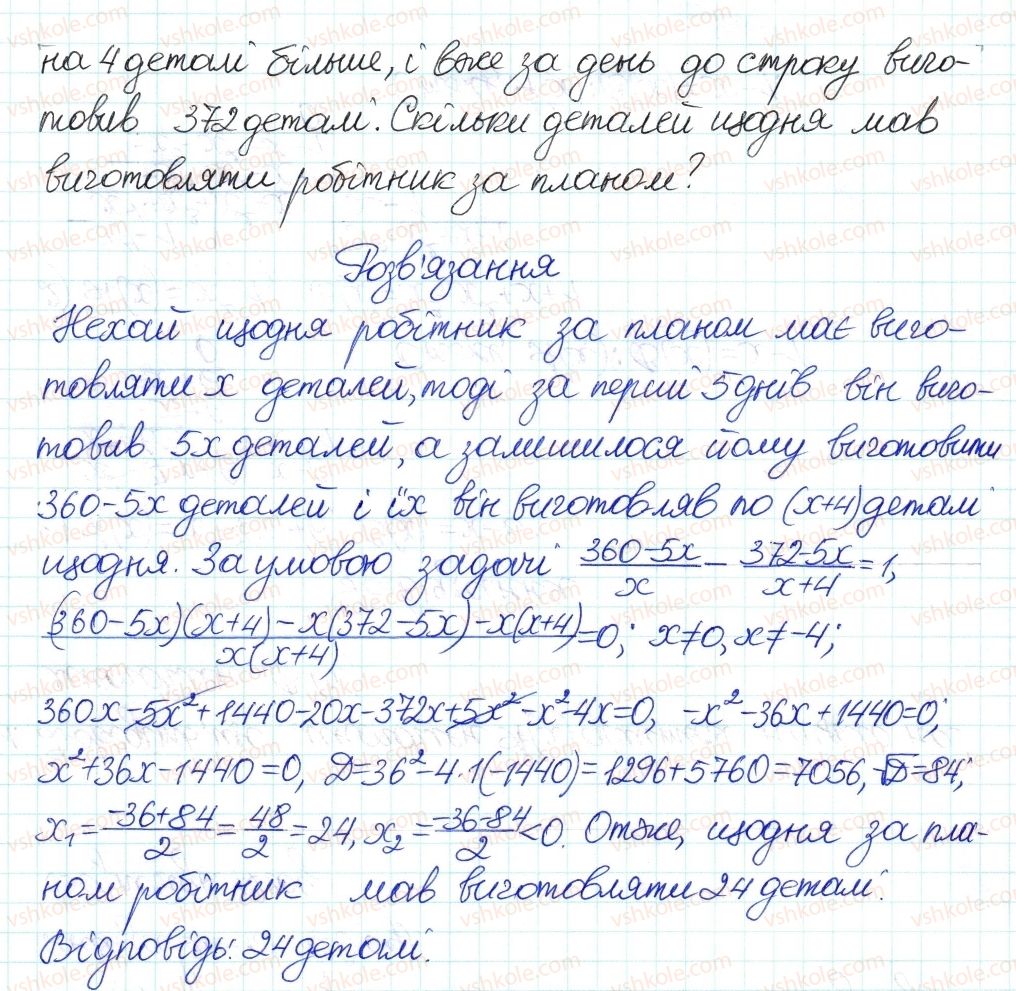 на 4 деталі більше, і вже за день до строку виго-
товив 372 деталі. Скільки деталей щодня мав
виготовляти робітник за планом?
Розв'язання
Нехай щодня робітник за планом має виго-
товляти x деталей, тоді за перші 5 днів він виго-
товив 5x деталей, а залишилося йому виготовити
360-5x деталей і їх він виготовляв по (x+4) деталі
щодня. За умовою задачі (360-5x)/x - (372-5x)/(x+4) = 1,
((360-5x)(x+4)-x(372-5x)-x(x+4))/(x(x+4)) = 0; x≠0, x≠-4;
360x-5x²+1440-20x-372x+5x²-x²-4x=0, -x²-36x+1440=0;
x²+36x-1440=0, D=36²-4·1(-1440)=1296+5760=7056, √D=84;
x₁=(-36+84)/2=48/2=24, x₂=(-36-84)/2<0. Отже, щодня за пла-
ном робітник мав виготовляти 24 деталі.
Відповідь: 24 деталі.
vshkole.com